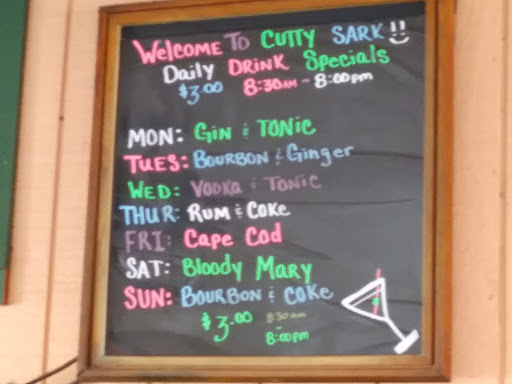 Welcome To Cutty Sark
Daily Drink Specials
$3.00 8:30am - 8:00pm
Mon: Gin & Tonic
Tues: Bourbon & Ginger
Wed: Vodka & Tonic
Thur: Rum & Coke
Fri: Cape Cod
Sat: Bloody Mary
Sun: Bourbon & Coke
$3.00 8:30am
-
8:00pm